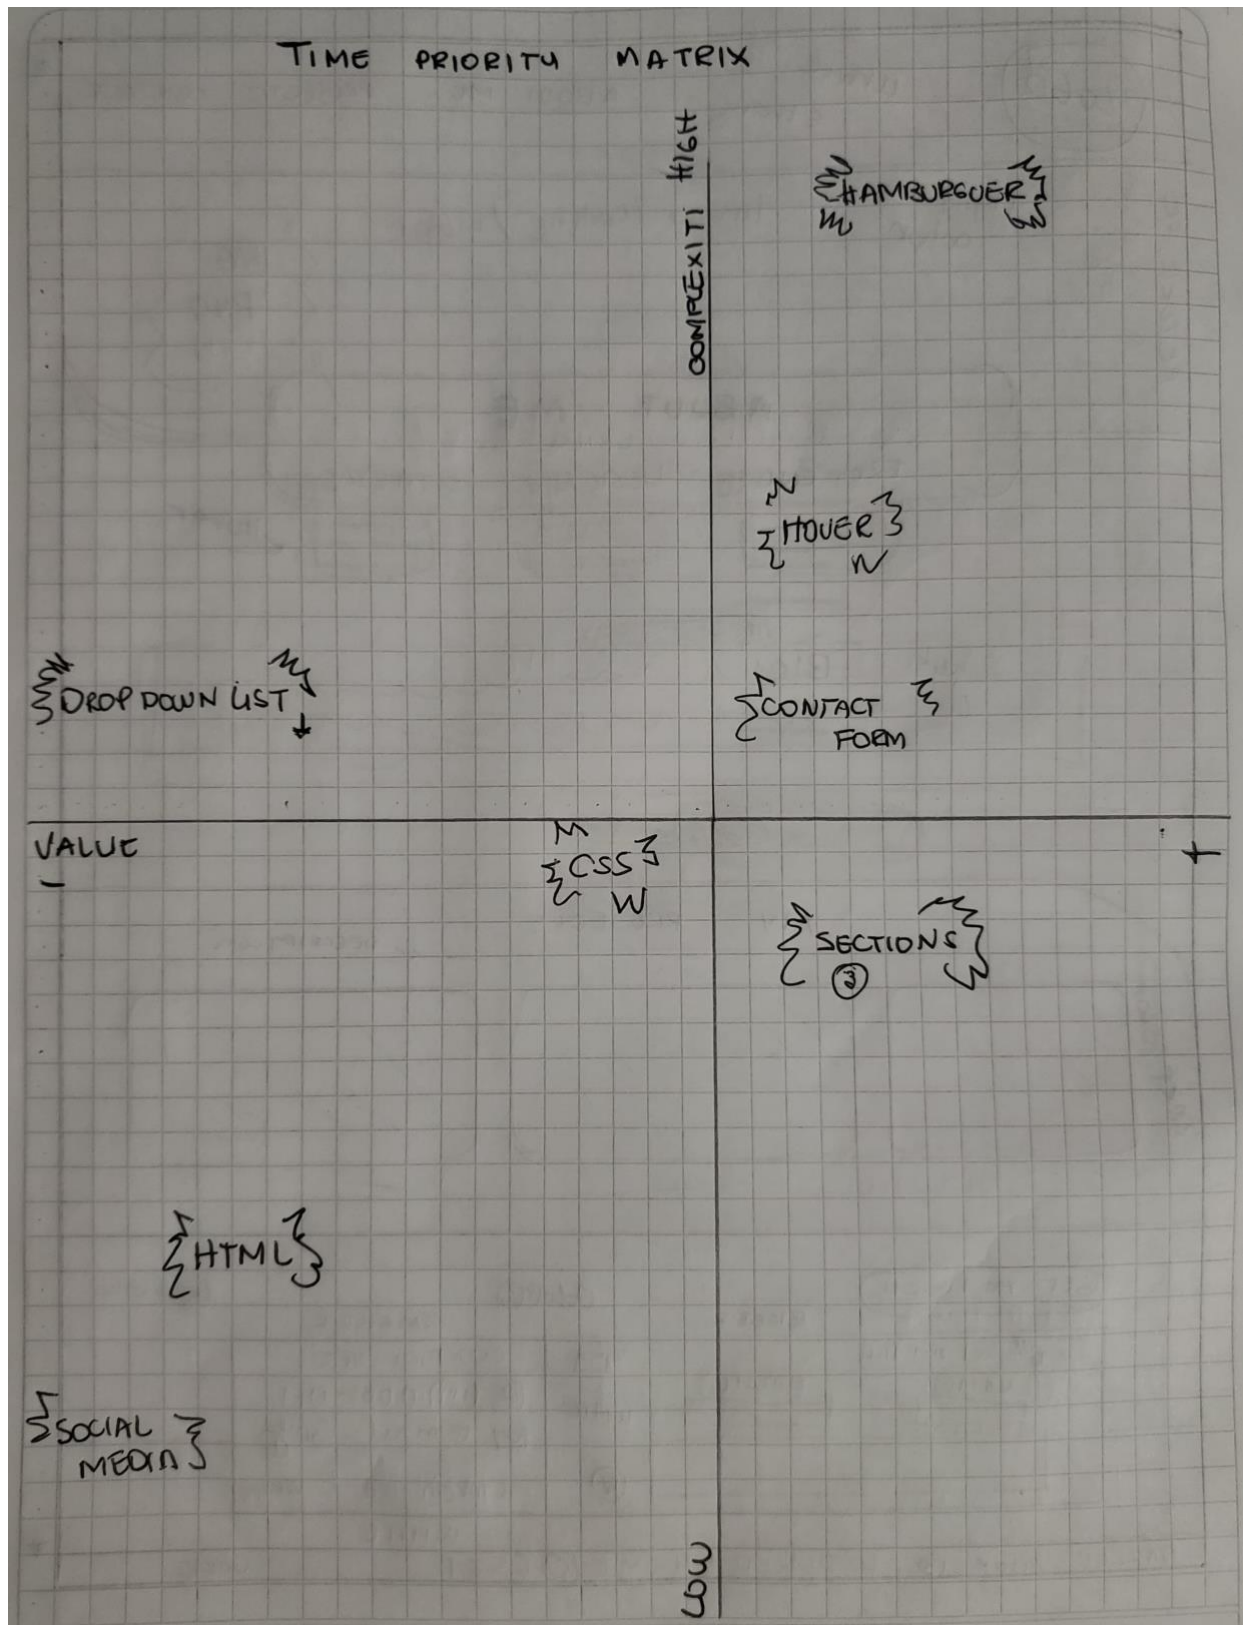 TIME PRIORITY MATRIX
COMPLEXITI HIGH
HAMBURGUER
HOVER
DROP DOWN LIST
CONTACT
FORM
VALUE
-
+
CSS
SECTIONS
3
HTML
SOCIAL
MEDIA
LOW